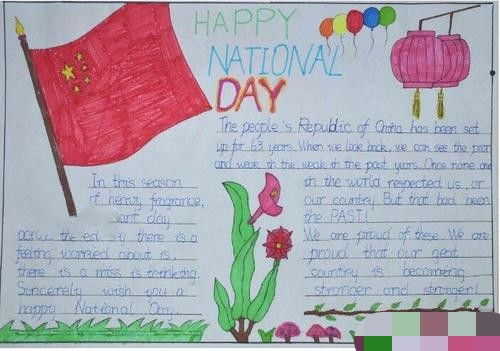 HAPPY
NATIONAL
DAY
The people's Republic of China has been set
up for 63 years. When we look back, we can see the poor
and weak in the weak in the past years. Once none one
in the world respected us, or
our country. But that had been
the PAST!
We are proud of these. We are
proud that our geat
country is becoming
stronger and stronger!
In this season
of heavy fragrance,
day
there is a
feeling worried about is,
there is a miss is thinking.
Sincerely wish you a
happy National Day.